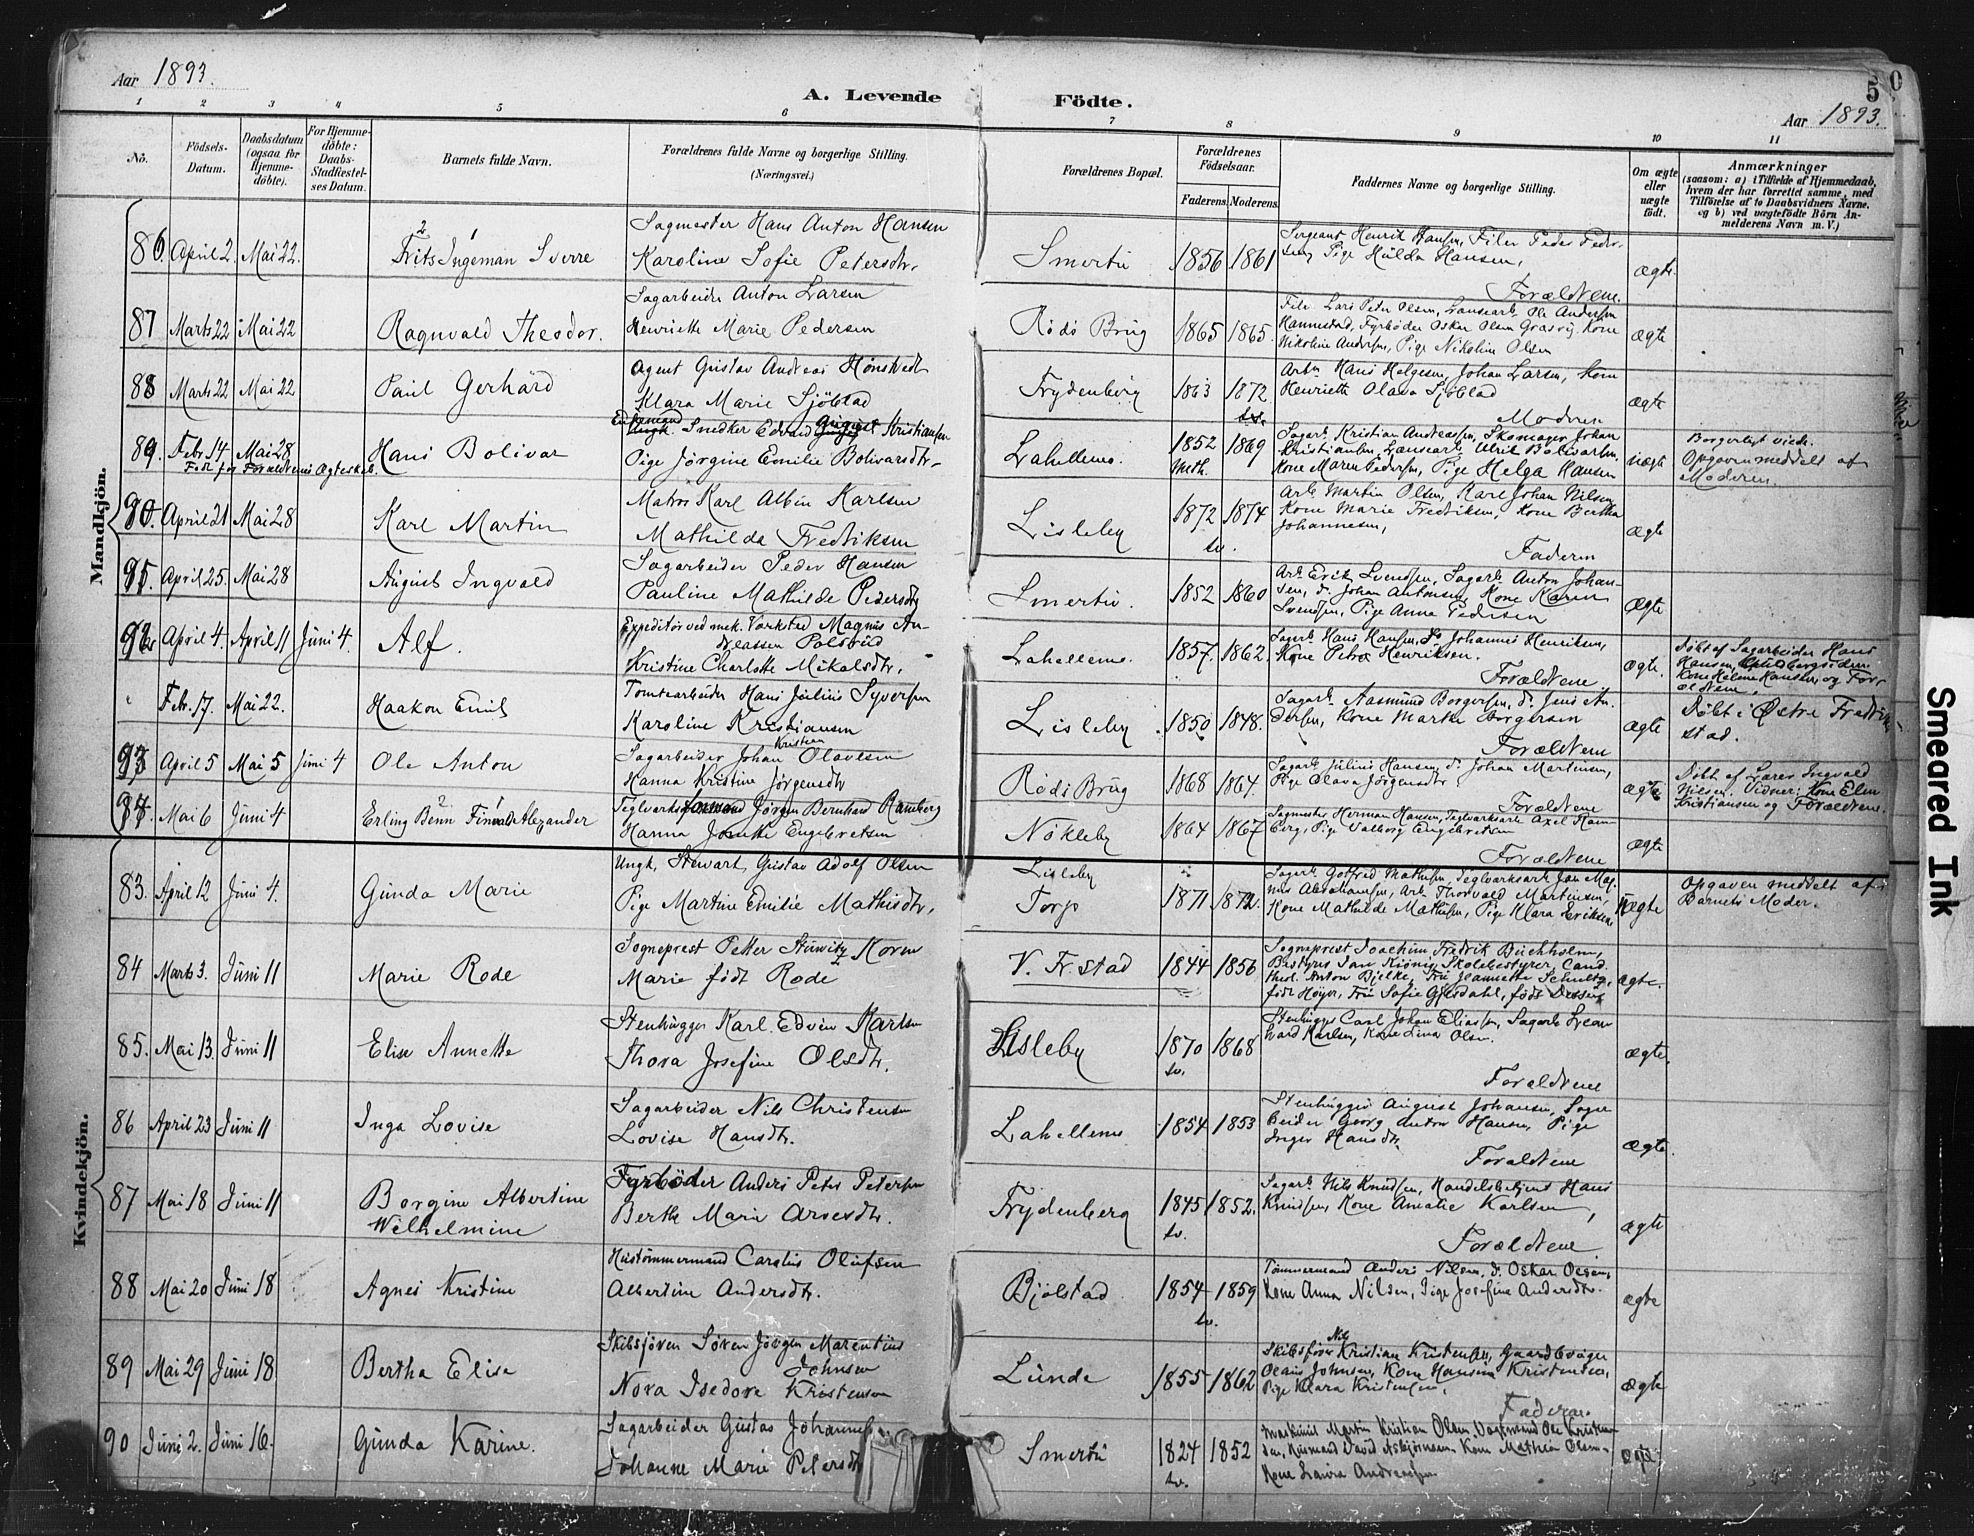 Aar 1893.
A. Levende Födte.
50
Aar 1893.
1 2 3 4 5 6 7 8 9 10 11
No.
Födsels-Datum.
Daabsdatum (ogsaa for Hjemme-döbte).
For Hjemme-döbte: Daabs-Stadfæstel-ses Datum.
Barnets fulde Navn.
Forældrenes fulde Navne og borgerlige Stilling. (Næringsvei.)
Forældrenes Bopæl.
Forældrenes Födselsaar.
Faderens. Moderens.
Faddernes Navne og borgerlige Stilling.
Om ægte eller uægte födt.
Anmærkninger
(saasom: a) i Tilfælde af Hjemmedaab, hvem der har forrettet samme, med Tilföielse af to Daabsvidners Navne. og b) ved uægtefödte Börn An-melderens Navn m. V.)
Mandkjön.
86. April 2. Mai 22. Frits Ingeman Sverre
Sagmester Hans Anton Hansen
Karoline Sofie Petersdtr.
Smertu 1856 1861
Sergeant Henrik Hansen, Filer Peder Peder-
sen, Pige Hulda Hansen,
Forældrene.
ægte
87 Marts 22 Mai 22 Ragnvald Theodor.
Sagarbeider Anton Larsen
Henriette Marie Pedersen
Rödö Brug 1865 1865.
Filer Lars Peter Olsen, Ole Andersen
Hannestad, Fyrböder Oskar Olsen Græsvig, Kone
Nikoline Andersen, Pige Nikoline Olsen
ægte
88 Marts 22 Mai 22 Paul Gerhard
Agent Gustav Andreas Hönstvedt
Klara Marie Sjöblad
Frydenberg 1863 1872 sv.
Arb. Hans Helgesen, Johan Larsen, Kone
Henriette Olava Sjöblad
Modren
ægte
89. Febr. 14 Mai 28 Hans Bolivar
Födt før Forældrenes Ægteskab.
Enkemand Snedker Edvard August Kristiansen
Pige Jörgine Emilie Bolivarsdtr.
Lahellems. 1852 Meth. 1869
Sagarb. Kristian Andreassen, Skomager Johan
Kristiansen, Ulrik Bolivarsen,
Kone Maren Pedersen, Pige Helga Hansen
uægte
Borgerligt viede.
Opgaven meddelt af
Moderen.
90. April 21 Mai 28 Karl Martin
Matros Karl Albin Karlsen
Mathilda Fredriksen
Lisleby 1872 sv. 1874
Arb. Martin Olsen, Karl Johan Nilsen,
Kone Marie Fredriksen, Kone Bertha
Johannesen,
Faderen
ægte
91. April 25. Mai 28 August Ingvald
Sagarbeider Peder Hansen
Pauline Mathilde Pedersdtr
Smertu. 1852 1860
Arb. Erik Svendsen, Sagarb. Anton Johan-
sen, d. Johan Antonsen, Kone Karen
Svendsen, Pige Anna Pedersen
ægte
92 April 4. April 11 Juni 4. Alf.
Expeditör ved mek. Værksted Magnus An-
dreassen Polsrud
Kristine Charlotte Mikalsdtr.
Lahellems. 1857. 1862.
Sagarb. Hans Hansen, Do Johannes Henriksen,
Kone Petra Henriksen.
Forældrene
ægte.
Döbt af Sagarbeider Hans
Hansen,
Kone Helene Hansen, og For-
ældrene.
Febr. 17. Mai 22. Haakon Emil
Tomtearbeider Hans Julius Syversen
Karoline Kristiansen
Lisleby. 1850 1848.
Sagarb. Aasmund Borgersen, d. Jens An-
dersen, Kone Marthe Borgersen
Forældrene
ægte
Döbt i Østre Fredrik-
stad.
93 April 5 Mai 5 Juni 4 Ole Anton
Sagarbeider Johan Kristian Olavesen
Hanna Kristine Jörgensdtr
Rödö Brug 1868 1864.
Sagarb. Julius Hansen, d. Johan Martinsen,
Pige Olava Jörgensdtr
Forældrene
ægte
Döbt af Lærer Ingvald
Nilsen. Vidner: Kone Elen
Kristiansen og Forældrene.
94 Mai 6 Juni 4 Erling Benn Finvald Alexander
Teglværksformand Jörgen Bernhard Ramberg
Hanna Engebretsen
Nökleby 1864 1867
Sagmester Herman Hansen, Teglværksarb. Axel Ram-
berg, Pige Valborg Engebretsen
Forældrene
ægte
Kvindekjön.
83. April 12 Juni 4. Gunda Marie
Ungk. Stewart Gustav Adolf Olsen
Pige Martine Emilie Mathisdtr.
Lisleby
Torp 1871 1872.
Sagarb. Gotfred Mathisen, Teglværksarb. Jan Mag-
nus Abrahamsen, Arb. Thorvald Martinsen,
Kone Mathilde Mathisen, Pige Klara Eriksen
Uægte
Opgaven meddelt af
Barnets Moder.
84 Marts 3. Juni 11 Marie Rode
Sogneprest Petter Stuwitz Koren
Marie födt Rode
V. Fr.stad 1844 1856
Sogneprest Joachim Fredrik Buchholm,
Bestyrer Jan Skolebestyrer, Cand.
theol. Anton Bjelke, Fru Jeannette Schultz,
födt Höyer, Fru Sofie Gjesdahl, födt
ægte.
85. Mai 13. Juni 11 Elise Annette
Stenhugger Karl Edvin Karlsen
Thora Josefine Olsdtr.
Lisleby 1870 sv. 1868
Stenhugger Carl Johan Eliassen, Sagarb.
Karlsen, Kone Lina Olsen.
Forældrene
ægte.
86 April 23 Juni 11 Inga Lovise
Sagarbeider Nils Christensen
Lovise Hansdtr.
Lahellems 1854 1853
Stenhugger August Johansen, Sagar-
beider Georg Anton Hansen, Pige
Inger Hansdtr.
Forældrene
ægte.
87 Mai 18 Juni 11 Borgine Albertine
Wilhelmine
Fyrböder Anders Peter Petersen
Berthe Marie Arnesdtr.
Frydenberg 1845 sv. 1852.
Sagarb. Nils Knudsen, Handelsbetjent Hans
Knudsen, Kone Amalie Karlsen,
Forældrene
ægte
88 Mai 20 Juni 18 Agnes Kristine
Hustömmermand Carolius Olufsen
Albertine Andersdtr.
Bjölstad 1854 sv. 1859
Tömmermand Anders Nilsen, d. Oskar Olsen,
Kone Anna Nilsen, Pige Josefine Andersdtr.
ægte
89 Mai 29 Juni 18. Bertha Elise
Skibsförer Sören Jörgen Marentius
Johnsen
Nora Isedore Kristensen
Lunde 1855 1862
Skibsförer Nils Kristian Kristensen, Gaardbruger
Olaus Johnsen, Kone Hansine Kristensen,
Pige Klara Kristensen,
Faderen.
ægte
90 Juni 2. Juni 16. Gunda Karine.
Sagarbeider Gustav Johannes
Johanne Marie Petersdtr
Smertu 1824 sv. 1852
Maskinist Martin Kristian Olsen, Ole Kristen-
sen, Husmand David Asbjörnsen, Kone Mathea Olsen
Kone Laura Andreassen
ægte
Smeared Ink